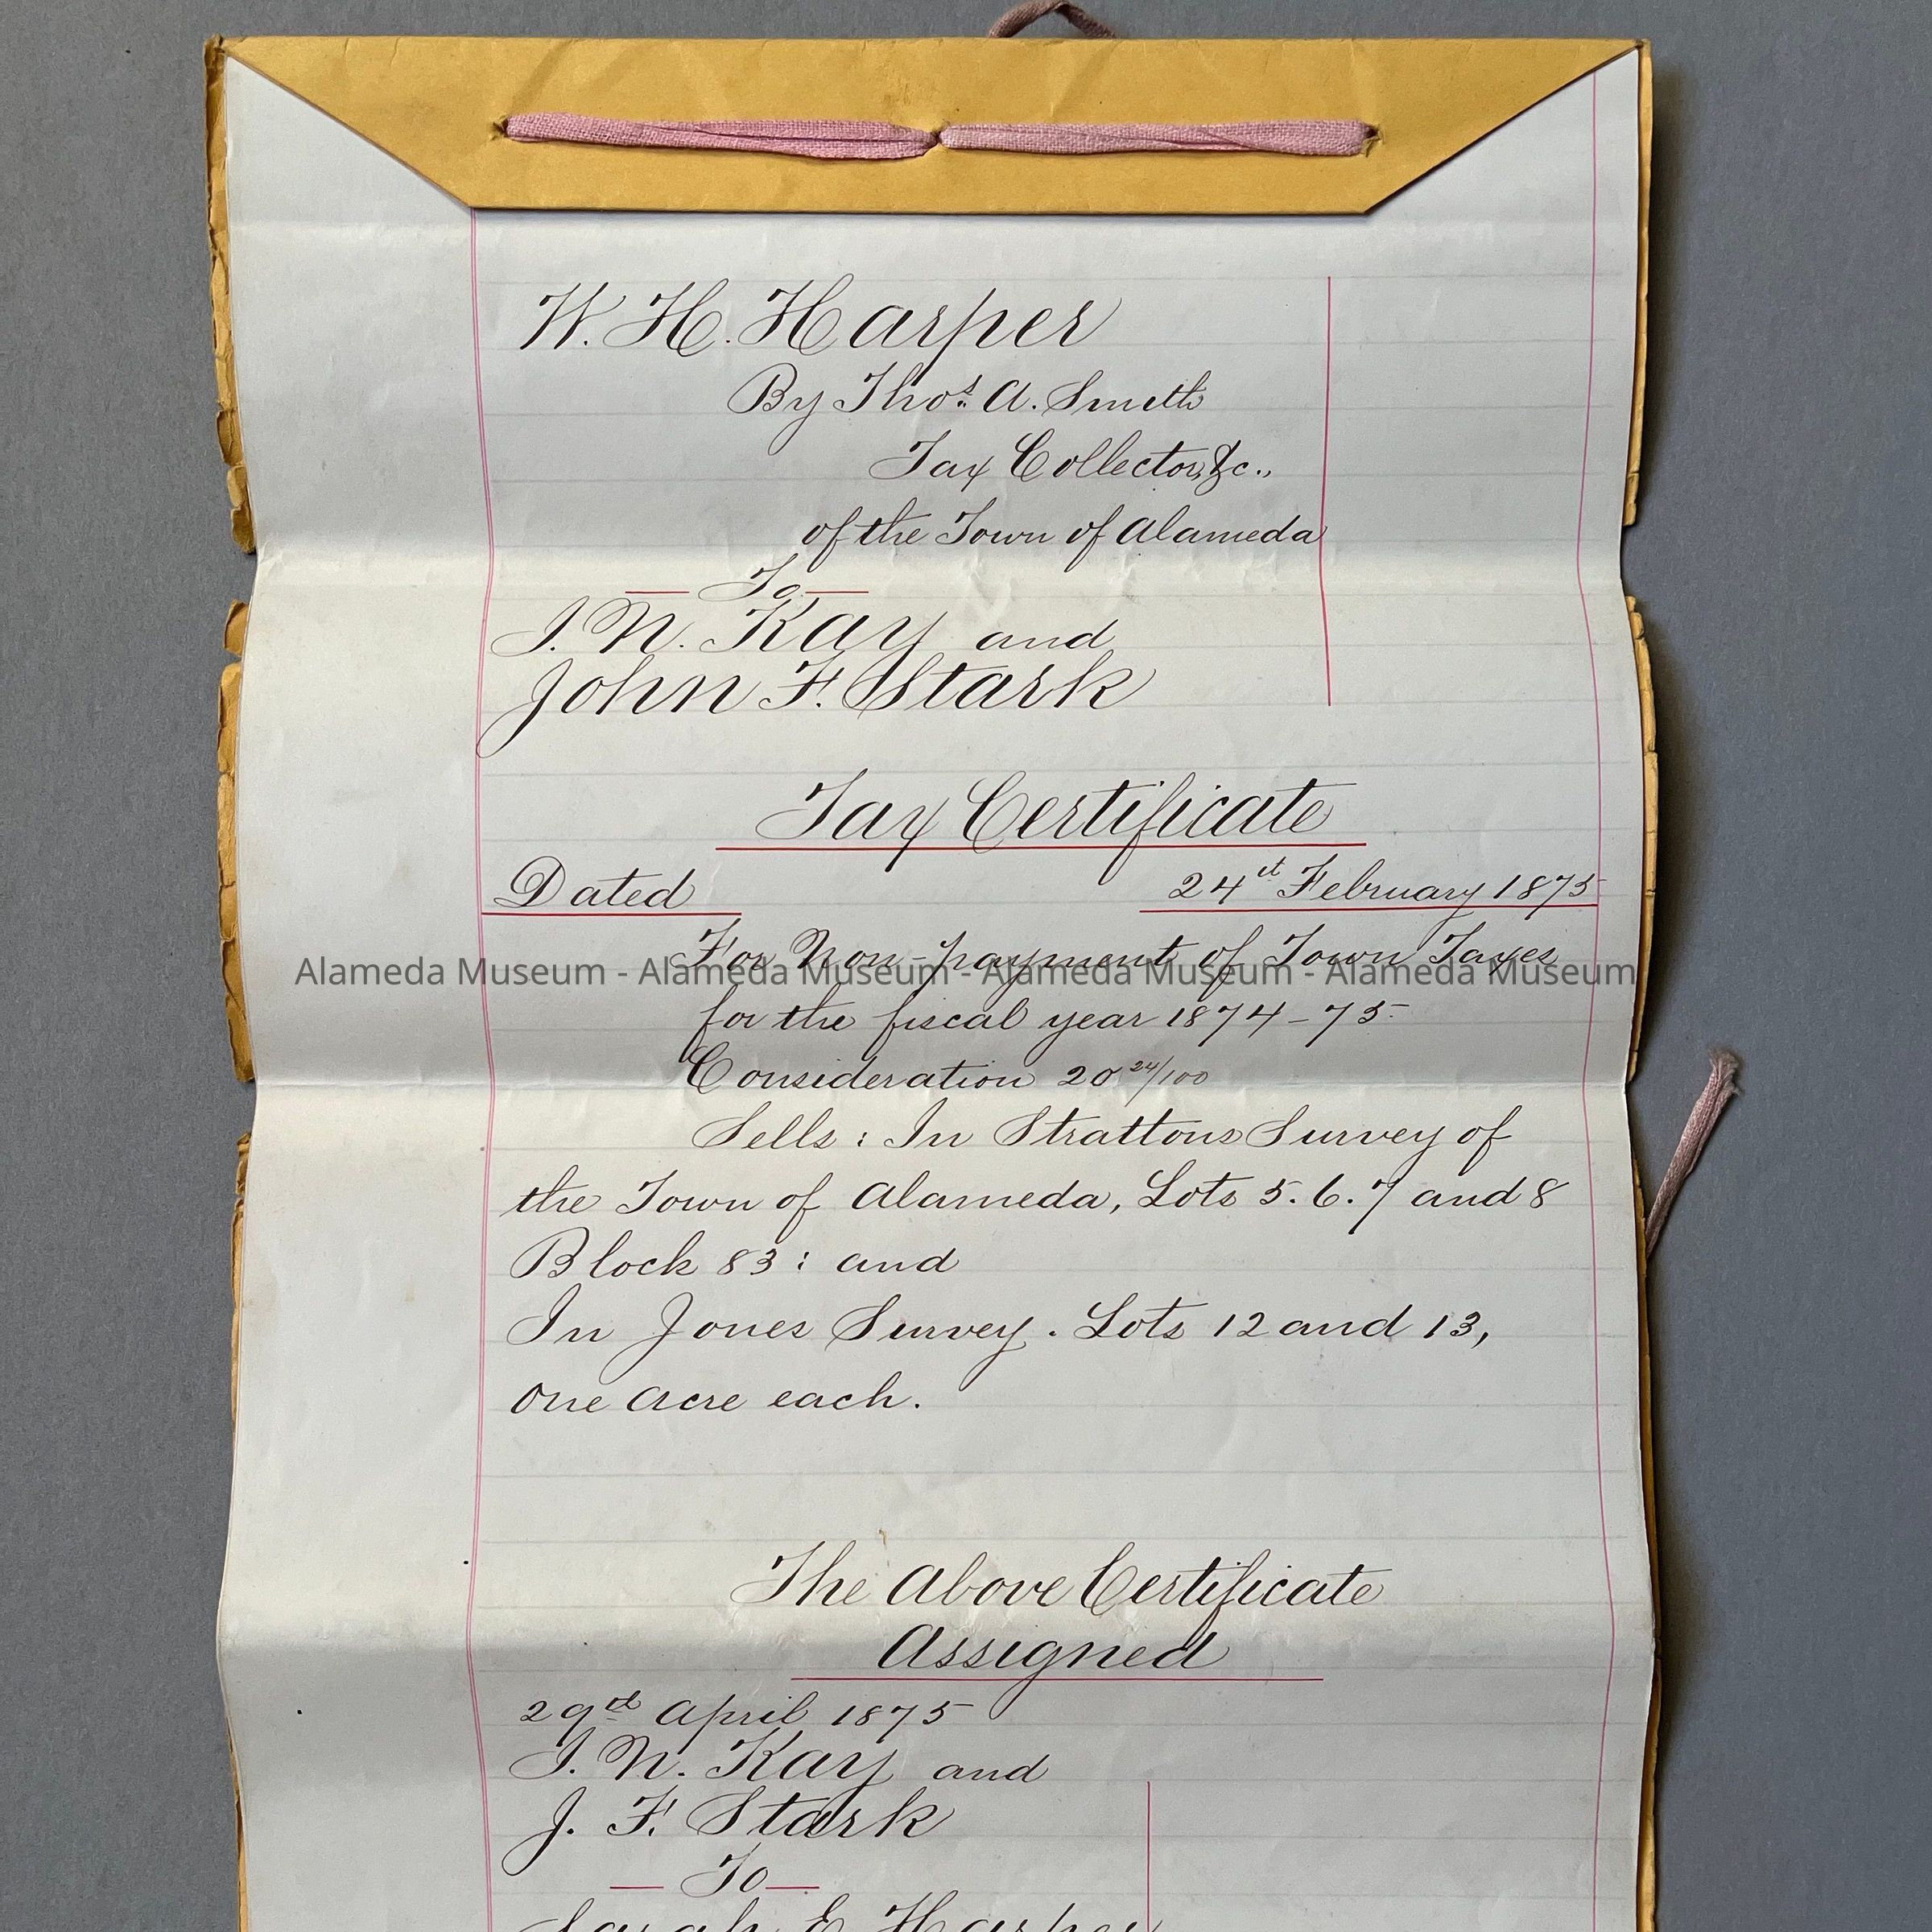 W. H. Harper
By Thos. A. Smith
Tax Collector, &c.,
of the Town of Alameda
— To —
I. N. Kay and
John F. Stark
Tax Certificate
Dated 24th February 1875
For Non-payment of Town Taxes
Alameda Museum - Alameda Museum - Alameda Museum - Alameda Museum
for the fiscal year 1874-75
Consideration 20 24/100
Sells : In Strattons Survey of
the Town of Alameda, Lots 5. 6. 7 and 8
Block 83 : and
In Jones Survey. Lots 12 and 13,
one acre each.
The Above Certificate
Assigned
29th April 1875
I. N. Kay and
J. F. Stark
— To —
Sarah E Harper